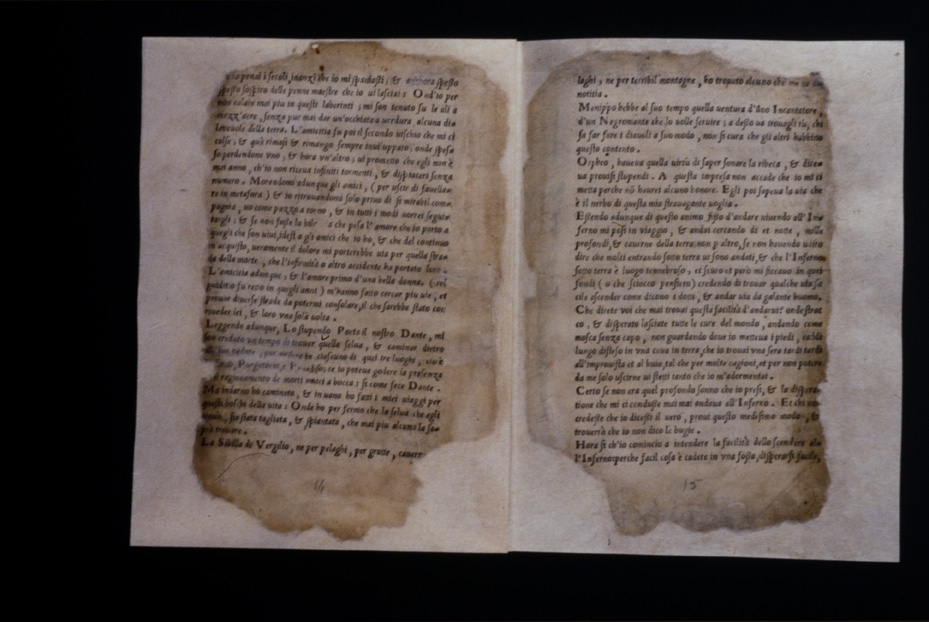 penai i secoli, inanzi che io mi spechiassi; & ancora spesso
spesso sospiro delle penne maestre che io ui lasciai: Ond'io per
non calare mai piu in questi laberinti; mi son tenuto su le ali a
mezz'aere, senza pur mai dar un'occhiata a uerdura alcuna di
leuole della terra. L'amicitia fu poi il secondo uischio che mi ci
colse; & qui rimasi & rimango sempre inuiluppato; onde spesso
so perdendone vno, & hora vn'altro; al presente che egli non è
mai anno, ch'io non riceua infiniti tormenti, & dispiaceri senza
numero. Morendomi adunque gli amici, (per uscir di fauella
re in metafora) & io ritrouandomi solo priuo di si mirabil com
pagnia, uo come pazzo a torno, & in tutti i modi uorrei seguir
targli; & se non fosse la che pesa l'amore che io porto a
quegli che son uiui, idest a gl'amici che io ho, & che del continuo
in acquisto, ueramente il dolore mi porterebbe uia per quella stra
da della morte, che l'infirmità o altro accidente ha portato loro.
L'amicitia adunque, & l'amore primo d'una bella donna (cre
guidato fu reso in quegli anni) m'hanno fatto cercar piu uie, et
prouar diuerse strade da potermi consolare, il che sarebbe stato con
riueder ici, & loro vna sola volta.
Leggendo adunque, Lo stupendo Poeta il nostro Dante, mi
son creduto un tempo di trouar quella selua, & caminar dietro
per ciascuno di quei tre luoghi, cioè
Purgatorio, e se io poteua godere la presenza
il ragionamento de morti amici a bocca: si come fece Dante.
Ma indarno ho caminato, & in uano ho fatti i miei uiaggi per
boschi della vita: Onde ho per fermo che la selua che egli
sia stata tagliata, & spiantata, che mai piu alcuno la so
prà trouare.
La Sibilla de Vergilio, ne per pelaghi, per grotte, cauerne
14
laghi; ne per terribil montagne, ho trouato alcuno che me ne dia
notitia.
Menippo hebbe al suo tempo quella uentura d'vno Incantatore,
d'un Negromante che lo uolle seruire; a desso ua trouagli tu; che
se far fare i diauoli a suo modo, non si cura che gli altri habbino
questo contento.
Orpheo, haueua quella uirtù di saper sonare la ribeca, & dire
ua prouisi stupendi. A questa impresa non accade che io mi ci
metta perche nõ haurei alcuno honore. Egli poi sapeua la uia che
è il neruo di questa mia strauagante uoglia.
Essendo adunque di questo animo fisso d'andare uiuendo all'In-
ferno mi posi in viaggio, & andai cercando dì et notte, nelle
profondi, & cauerne della terra: non p altro, se non hauendo udito
dire che molti entrando sono terra ui sono andati, & che l'Inferno
sotto terra è luogo tenebroso, et scuro: et però mi ficcauo in quei
fondi (o che sciocco pensiero) credendo di trouar qualche uia fa
cile ascender come dicono i dotti, & andar uia da galante huomo.
Che direte voi che mai trouai questa facilità d'andarui? onde strac
co, & disperato lasciate tutte le cure del mondo, andando come
mosca senza capo, non guardando doue io metteua i piedi, caddi
lungo disteso in vna caua in terra, che io trouai vna sera tardi tardi
all'improuista et al buio, tal che per molte cagioni, et per non potere
da me solo uscirne ui stetti tanto che io m'adormentai.
Certo se non era quel profondo sonno che io presi, & la dispera-
tione che mi ci condusse mai mai andaua all'Inferno. Et chi non
credesse che io dicessi il uero, proui questo medesimo modo, &
trouerrà che io non dico le bugie.
Hora sì ch'io comincio a intendere la facilità dello scendere al-
l'Inferno: perche facil cosa è cadere in vna fossa, disperarsi facile,
15